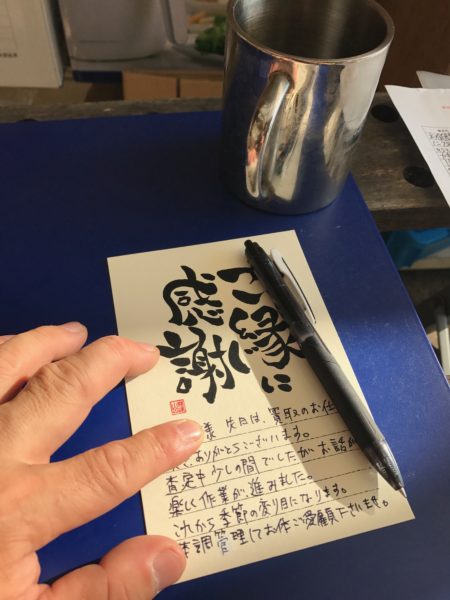 ご縁に
感謝
様 先日は、買取のお仕
ありがとうございます。
査定中少しの間でしたがお話が
楽しく作業が進みました。
これから季節の変り目になります。
体調管理してお体ご愛顧下さいませ。